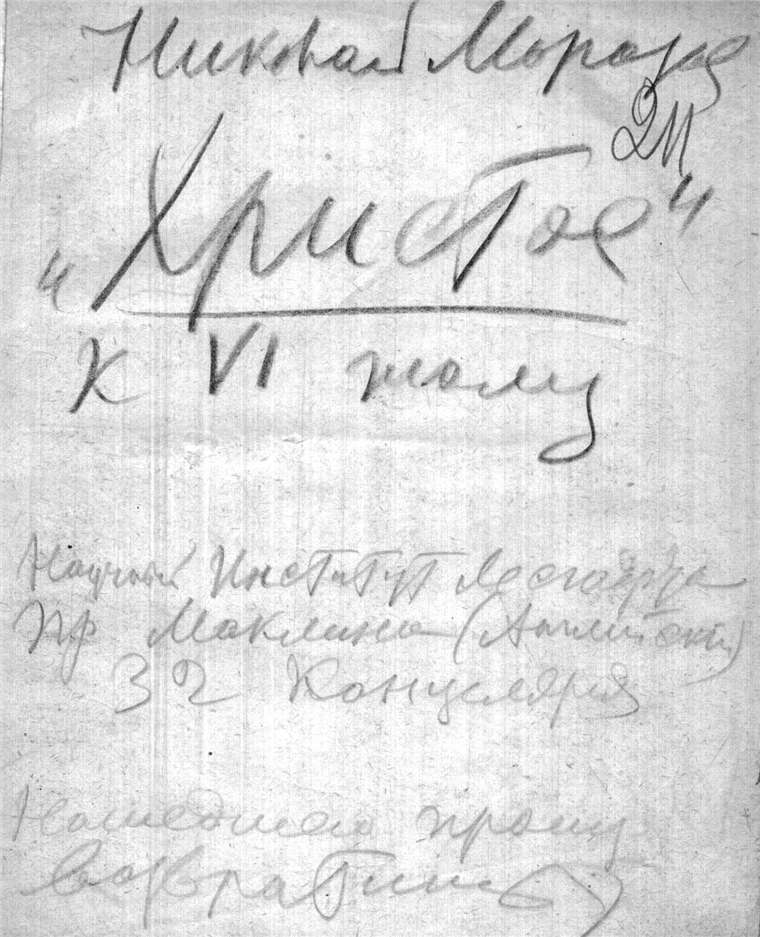 Николай Морозов
"Христос"
к VI тому
Научный Институт Лесгафта
пр Маклина (Английский)
32 Канцелярия
Нашедшего прошу
возвратить